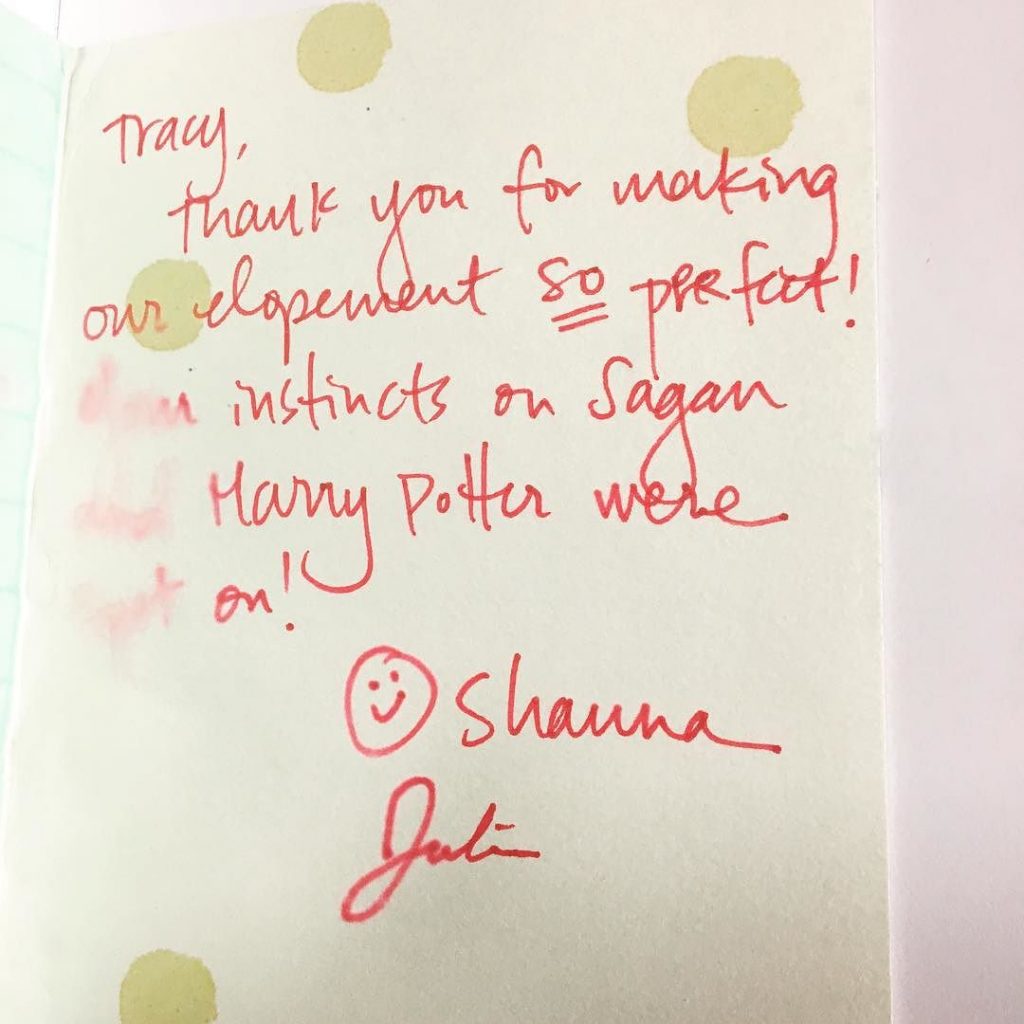 Tracy,
thank you for making
our elopement so perfect!
instincts on Sagan
Harry Potter were
on!
Shauna